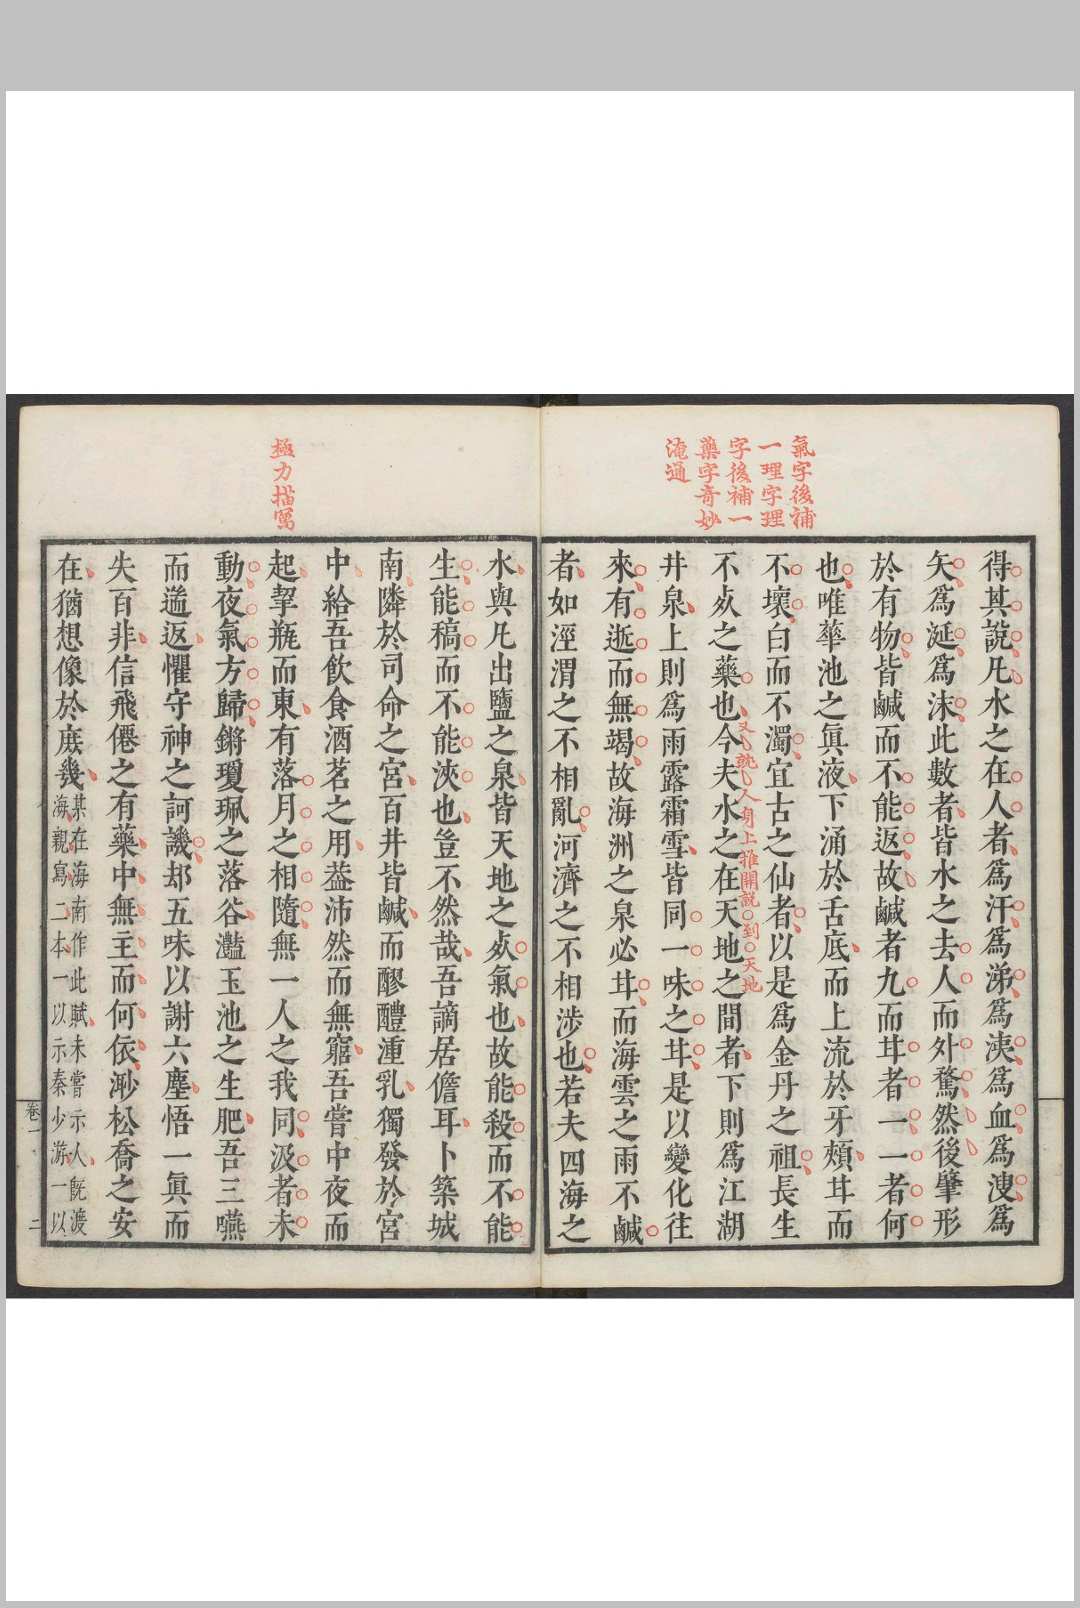 氣字後補
一理字理
字後補一
藥字奇妙
淹通
得其說凡水之在人者爲汗爲涕爲洟爲血爲溲爲
矢爲涎爲沫此數者皆水之去人而外騖然後肇形
於有物皆鹹而不能返故鹹者九而甘者一一者何
也唯華池之眞液下涌於舌底而上流於牙頰甘而
不壞白而不濁宜古之仙者以是爲金丹之祖長生
不死之藥也今夫水之在天地之間者下則爲江湖
又就人身上推開說到天地
井泉上則爲雨露霜雪皆同一味之甘是以變化往
來有逝而無竭故海洲之泉必甘而海雲之雨不鹹
者如涇渭之不相亂河濟之不相涉也若夫四海之
極力描寫
水與凡出鹽之泉皆天地之死氣也故能殺而不能
生能稿而不能浹也豈不然哉吾謫居儋耳卜築城
南隣於司命之宮百井皆鹹而醪醴湩乳獨發於宮
中給吾飲食酒茗之用葢沛然而無窮吾嘗中夜而
起挈甁而東有落月之相隨無一人之我同汲者未
動夜氣方歸鏘瓊珮之落谷灩玉池之生肥吾三嚥
而遄返懼守神之訶譏却五味以謝六塵悟一眞而
失百非信飛僊之有藥中無主而何依渺松喬之安
在猶想像於庻幾
某在海南作此賦未嘗示人旣渡
海親寫二本一以示秦少游一以
卷二
二